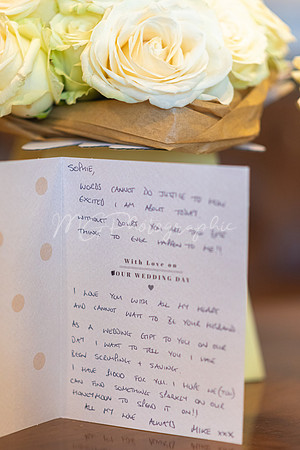 SOPHIE,
WORDS CANNOT DO JUSTICE TO HOW
EXCITED I AM ABOUT TODAY
WITHOUT DOUBT YOU ARE THE BEST
THING TO EVER HAPPEN TO ME!!
Photographic
With Love on
OUR WEDDING DAY
I LOVE YOU WITH ALL MY HEART
AND CANNOT WAIT TO BE YOUR HUSBAND
AS A WEDDING GIFT TO YOU ON OUR
DAY I WANT TO TELL YOU I HAVE
BEEN SCRIMPING + SAVING
I HAVE FOR YOU. I HOPE WE (YOU)
CAN FIND SOMETHING SPARKLY ON OUR
HONEYMOON TO SPEND IT ON!!
ALL MY LOVE ALWAYS MIKE XXX